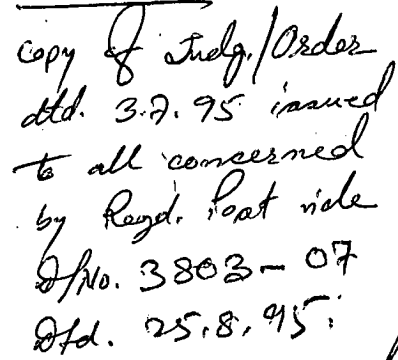 Copy of Judg./Order
dtd. 3.7.95 issued
to all concerned
by Regd. Post vide
D/No. 3803 - 07
Dtd. 25.8.95.